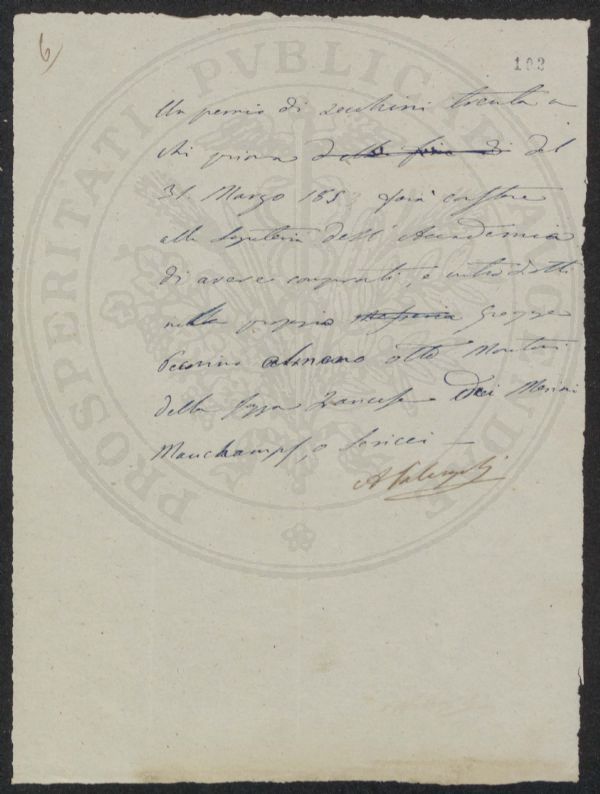 6)
102
Un premio di zecchini trenta a
chi prima della fine di del
31. Marzo 185 farà constare
alla Segreteria dell' Accademia
di avere comprati, e introdotti
nella propria Gregge
Pecorino almeno otto Montoni
della Razza Francese Dei Merini
Mauchamps, o Sericei —
PROSPERITATI PVBLICAE